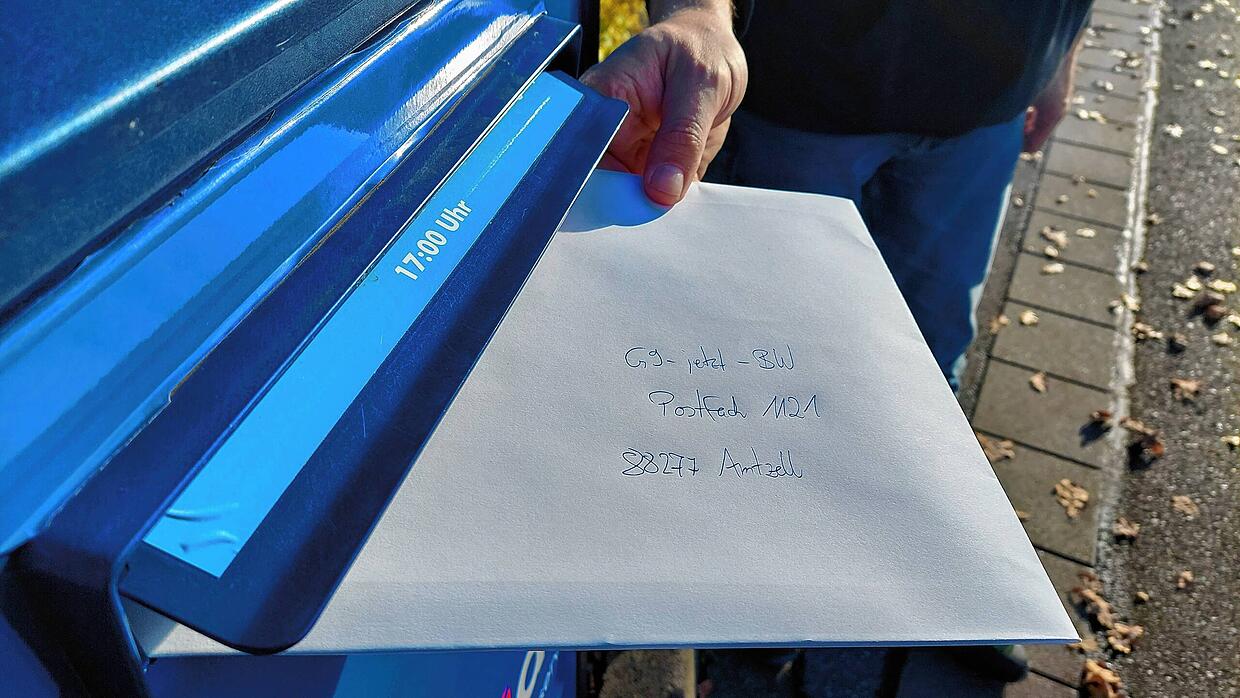 17:00 Uhr
G9-jetzt-BW
Postfach 1121
88277 Amtzell